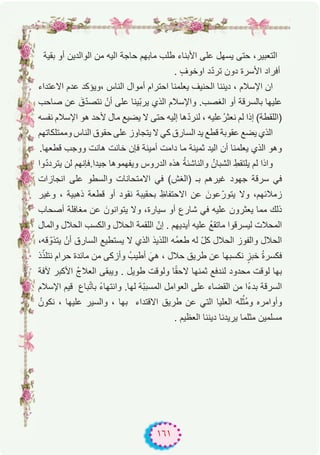 التعبير، حتى يسهل على الأبناء طلب مابهم حاجة اليه من الوالدين أو بقية
أفراد الأسرة دون تردّد اوخوف .
ان الإسلام ، ديننا الحنيف يعلمنا احترام أموال الناس ،ويؤكد عدم الاعتداء
عليها بالسرقة أو الغصب. والإسلام الذي يربّينا على أنْ نتصدّق عن صاحب
(اللقطة) إذا لم نعثر عليه ، لنردّها إليه حتى لا يضيع مال لأحد هو الإسلام نفسه
الذي يضع عقوبة قطع يد السارق كي لا يتجاوز على حقوق الناس وممتلكاتهم
وهو الذي يعلمنا أن اليد ثمينة ما دامت أمينة فإن خانت هانت ووجب قطعها.
واذا لم يلتقطِ الشبانُ والناشئةُ هذه الدروس ويفهموها جيدا,فإنهم لن يتردّدوا
في سرقة جهود غيرهم بـ (الغش) في الامتحانات والسطو على انجازات
زملائهم، ولا يتورّعون عن الاحتفاظ بحقيبة نقود أو قطعة ذهبية ، وغير
ذلك مما يعثرون عليه في شارع أو سيارة، ولا يتوانون عن مغافلة أصحاب
المحلات ليسرقوا ماتقعُ عليه أيديهم . إنّ اللقمة الحلال والكسب الحلال والمال
الحلال والفوز الحلال كلٌ له طعمُه اللذيذ الذي لا يستطيع السارق أنْ يتذوّقه،
فكسرةُ خبزٍ نكسبها عن طريق حلال ، هيَ أطيبُ وأزكى من مائدة حرام نتلذّذ
بها لوقت محدود لندفع ثمنها لاحقًا ولوقت طويل . ويبقى العلاجُ الأكبر لآفة
السرقة بدءًا من القضاء على العوامل المسبّبة لها. وانتهاءً باتّباع قيم الإسلام
وأوامره ومُثُله العليا التي عن طريق الاقتداء بها ، والسير عليها ، نكونُ
مسلمين مثلما يريدنا ديننا العظيم .
١٦١